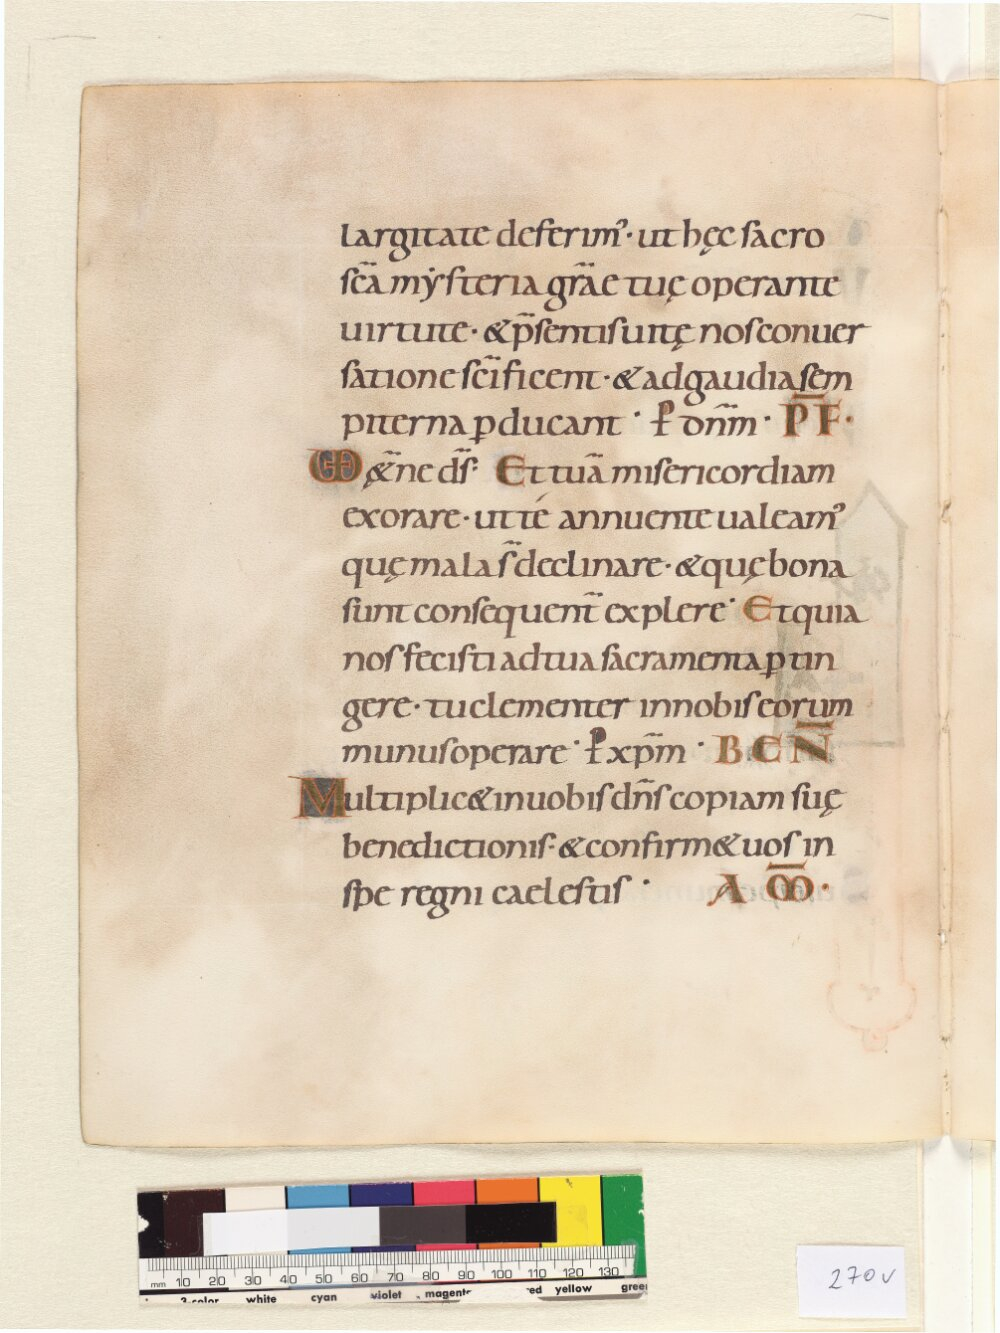 largitate deferimꝰ· ut hęc sacro
sc̄a mẏsteria gr̄ae tuę operante
uirtute· & p̄sentis uitę nos conuer
satione sc̄ificent· & ad gaudia sem
piterna ꝑducant · ꝑ dn̄m · P̄F̄·
Om̄s &ne ds̄· Et tuā misericordiam
exorare· ut té annuente ualeamꝰ
quę mala s̄ declinare· & quę bona
sunt consequent̄ explere· Et quia
nos fecisti ad tua sacramenta ꝑtin
gere· tu clementer in nobis eorum
munus operare· ꝑ xp̄m · BEN̄
Multiplic& in uobis dn̄s copiam suę
benedictionis· & confirm& uos in
spe regni caelestis · A M̄·
mm 10 20 30 40 50 60 70 80 90 100 110 120 130
3-color white cyan violet magenta red yellow green
270v